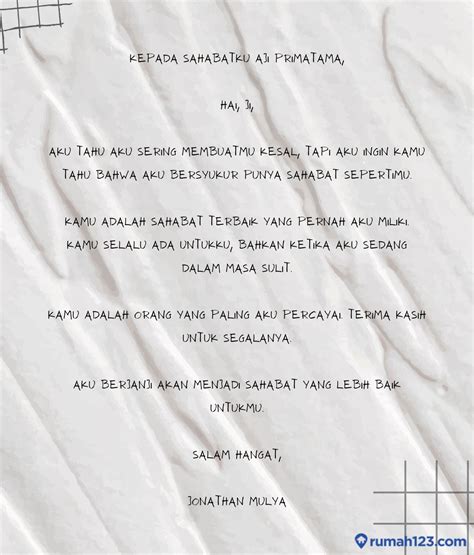 KEPADA SAHABATKU AJI PRIMATAMA,
HAI, JI,
AKU TAHU AKU SERING MEMBUATMU KESAL, TAPI AKU INGIN KAMU
TAHU BAHWA AKU BERSYUKUR PUNYA SAHABAT SEPERTIMU.
KAMU ADALAH SAHABAT TERBAIK YANG PERNAH AKU MILIKI.
KAMU SELALU ADA UNTUKKU, BAHKAN KETIKA AKU SEDANG
DALAM MASA SULIT.
KAMU ADALAH ORANG YANG PALING AKU PERCAYAI. TERIMA KASIH
UNTUK SEGALANYA.
AKU BERJANJI AKAN MENJADI SAHABAT YANG LEBIH BAIK
UNTUKMU.
SALAM HANGAT,
JONATHAN MULYA
rumah123.com